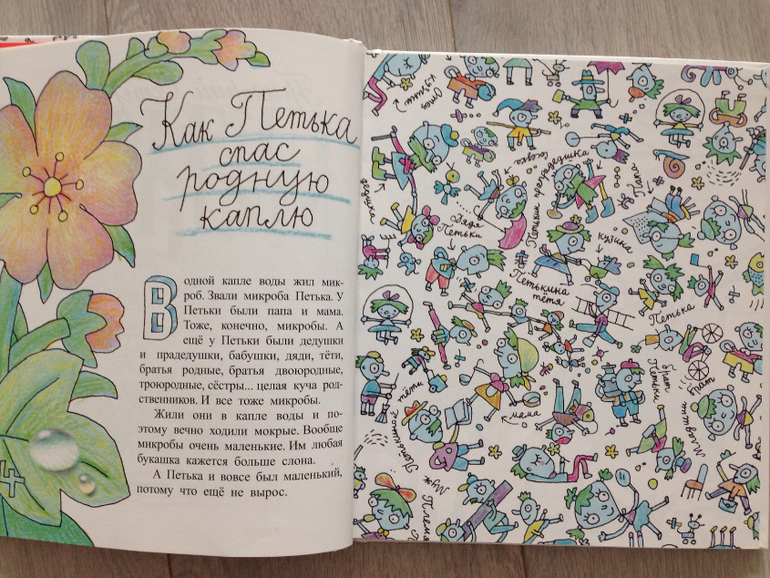 Как Петька
спас
родную
каплю
В одной капле воды жил мик-
роб. Звали микроба Петька. У
Петьки были папа и мама.
Тоже, конечно, микробы. А
ещё у Петьки были дедушки
и прадедушки, бабушки, дяди, тёти,
братья родные, братья двоюродные,
троюродные, сёстры... целая куча род-
ственников. И все тоже микробы.
Жили они в капле воды и по-
этому вечно ходили мокрые. Вообще
микробы очень маленькие. Им любая
букашка кажется больше слона.
А Петька и вовсе был маленький,
потому что ещё не вырос.
4
кузин
дедушка
Дядя
Петьки
Петькин прапрадедушка
Папа
кузина
Петькина
тётя
Петька
брат
Петьки
Младший
брат
мама
тёти
Муж